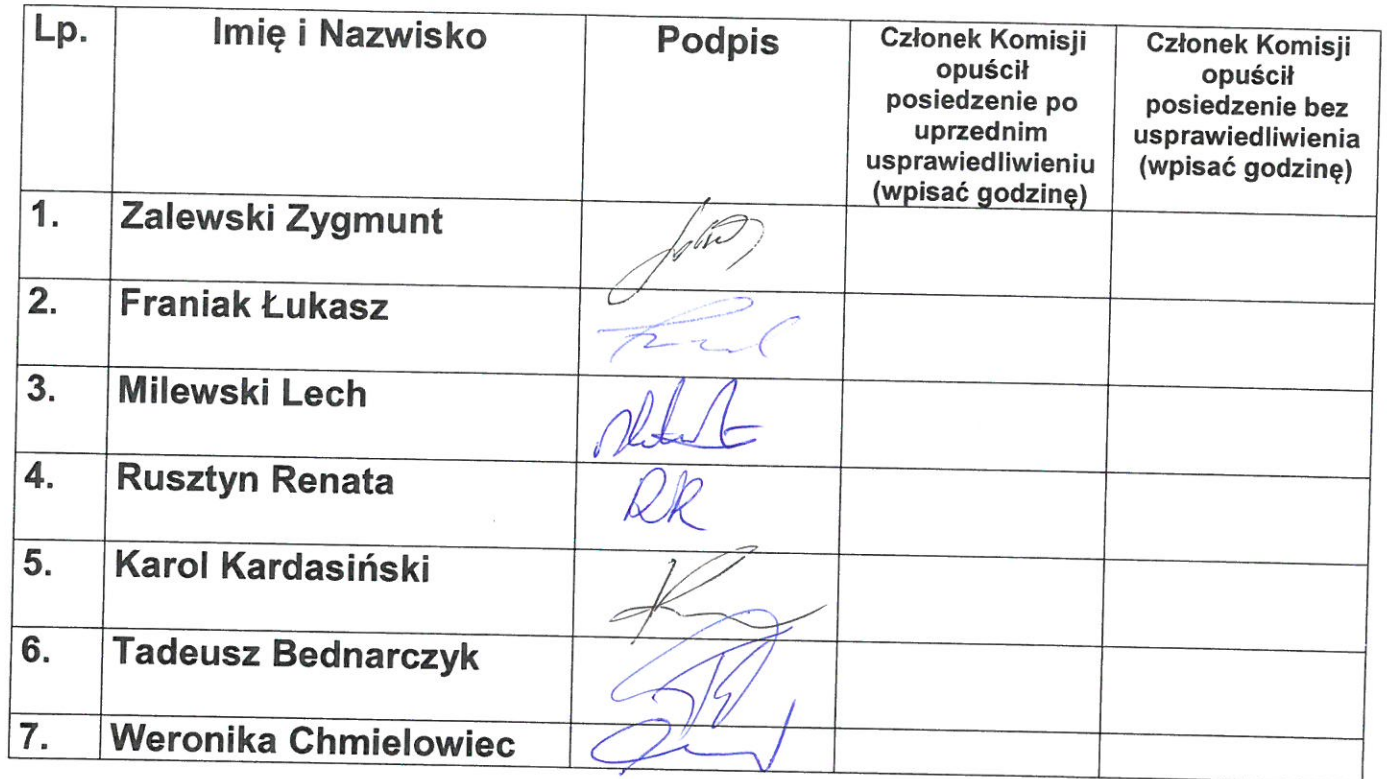 Lp.
Imię i Nazwisko
Podpis
Członek Komisji
opuścił
posiedzenie po
uprzednim
usprawiedliwieniu
(wpisać godzinę)
Członek Komisji
opuścił
posiedzenie bez
usprawiedliwienia
(wpisać godzinę)
1. Zalewski Zygmunt
2. Franiak Łukasz
3. Milewski Lech
4. Rusztyn Renata RR
5. Karol Kardasiński
6. Tadeusz Bednarczyk
7. Weronika Chmielowiec